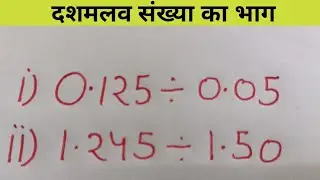 दशमलव संख्या का भाग
i) 0.125 ÷ 0.05
ii) 1.245 ÷ 1.50